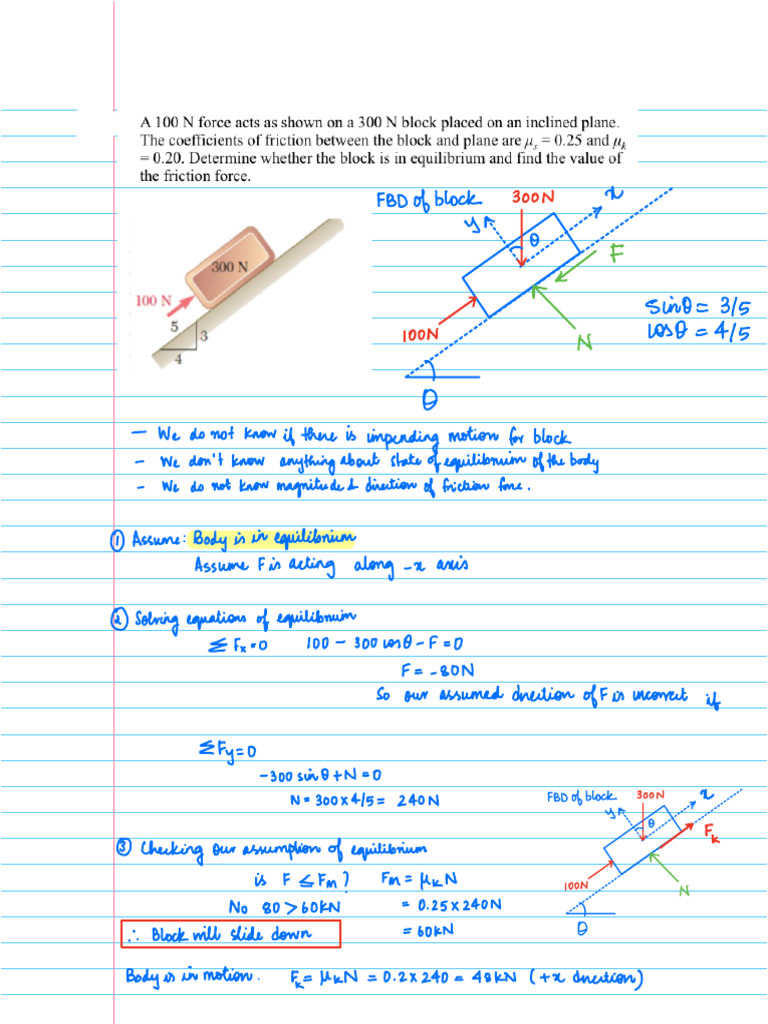 A 100 N force acts as shown on a 300 N block placed on an inclined plane.
The coefficients of friction between the block and plane are μs = 0.25 and μk
= 0.20. Determine whether the block is in equilibrium and find the value of
the friction force.
FBD of block
300N
x
y
θ
F
300 N
100 N
5
3
4
100N
N
θ
sinθ = 3/5
cosθ = 4/5
- We do not know if there is impending motion for block
- We don't know anything about state of equilibrium of the body
- We do not know magnitude & direction of friction force.
① Assume: Body is in equilibrium
Assume F is acting along -x axis
② Solving equations of equilibrium
ΣFx=0 100 - 300 cosθ - F = 0
F = -80N
So our assumed direction of F is incorrect if
ΣFy=0
-300 sinθ + N = 0
N = 300 x 4/5 = 240N
FBD of block
300N
x
y
θ
Fk
100N
N
θ
③ Checking our assumption of equilibrium
is F ≤ Fm? Fm = μkN
No 80 > 60KN = 0.25 x 240N
∴ Block will slide down = 60KN
Body is in motion. Fk = μkN = 0.2 x 240 = 48KN (+x direction)